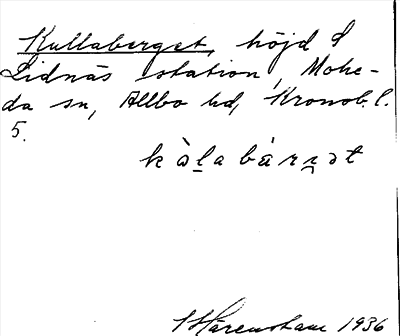 Kullaberget, höjd S
Lidnäs station, Mohe-
da sn, Allbo hd, Kronob. l.
5.
kàḷabárṛət
1936